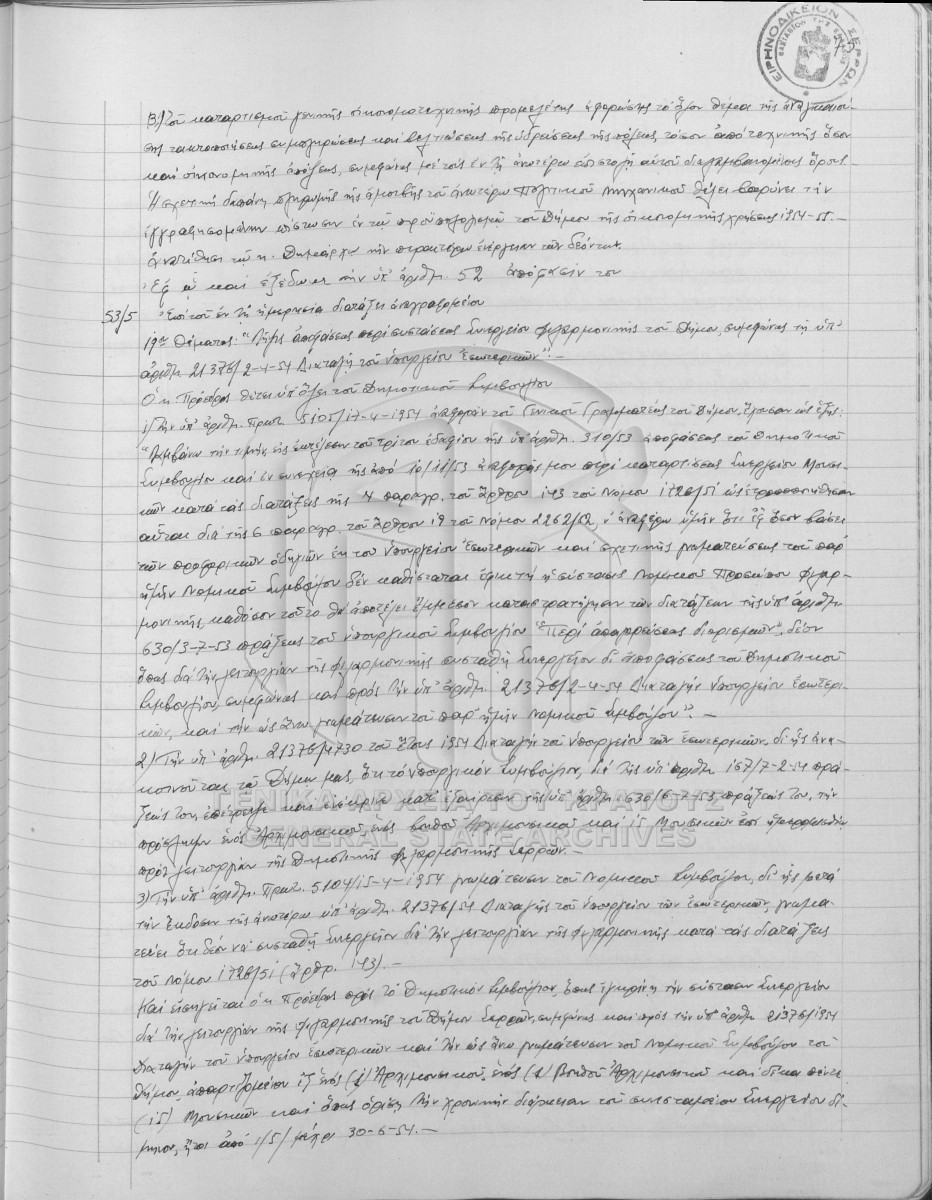 ΕΙΡΗΝΟΔΙΚΕΙΟΝ ΣΕΡΡΩΝ
75
β) Τοῦ καταρτισμοῦ γενικῆς οἰκονομοτεχνικῆς προμελέτης ἀφορώσης τὸ ὅλον θέμα τῆς ἀναγκαιού-
σης τακτοποιήσεως συμπληρώσεως καὶ βελτιώσεως τῆς ὑδρεύσεως τῆς πόλεως τόσον ἀπὸ τεχνικῆς ὅσον
καὶ οἰκονομικῆς ἀπόψεως, συμφώνως μὲ τοὺς ἐν τῇ ἀνωτέρω ἐπιστολῇ αὐτοῦ διαλαμβανομένους ὅρους.
Ἡ σχετικὴ δαπάνη πληρωμῆς τῆς ἀμοιβῆς τοῦ ἀνωτέρω Πολιτικοῦ Μηχανικοῦ θέλει βαρύνει τὴν
ἐγγραφησομένην πίστωσιν ἐν τῷ προϋπολογισμῷ τοῦ Δήμου τῆς οἰκονομικῆς χρήσεως 1954-55.—
Ἀναθέτει τῷ κ. Δημάρχῳ τὴν περαιτέρω ἐνέργειαν τῶν δεόντων.
Ἐφ' ᾧ καὶ ἐξέδωκε τὴν ὑπ' ἀριθμ. 52 ἀπόφασίν του
53/5 Ἐπὶ τοῦ ἐν τῇ ἡμερησίᾳ διατάξει ἀναγραφομένου
19ου θέματος: "Λῆψις ἀποφάσεως περὶ συστάσεως Συνεργείου Φιλαρμονικῆς τοῦ Δήμου, συμφώνως τῇ ὑπ'
ἀριθμ. 21376/2-4-54 Διαταγῇ τοῦ Ὑπουργείου Ἐσωτερικῶν".—
Ὁ κ. Πρόεδρος θέτει ὑπ' ὄψει τοῦ Δημοτικοῦ Συμβουλίου
1) Τὴν ὑπ' ἀριθμ. Πρωτ. 5105/17-4-1954 ἀναφορὰν τοῦ Γενικοῦ Γραμματέως τοῦ Δήμου, ἔχουσαν ὡς ἑξῆς:
"Λαμβάνω τὴν τιμήν, εἰς ἐκτέλεσιν τοῦ τρίτου ἐδαφίου τῆς ὑπ' ἀριθμ. 310/53 ἀποφάσεως τοῦ Δημοτικοῦ
Συμβουλίου καὶ ἐν συνεχείᾳ τῆς ἀπὸ 10/11/53 ἀναφορᾶς μου περὶ καταρτίσεως Συνεργείου Μουσι-
κῶν κατὰ τὰς διατάξεις τῆς 4 παραγρ. τοῦ ἄρθρου 143 τοῦ Νόμου 1726/51 ὡς ἐτροποποιήθησαν
αὗται διὰ τῆς 6 παραγρ. τοῦ ἄρθρου 19 τοῦ Νόμου 2262/52, ν' ἀναφέρω ὑμῖν ὅτι ἐφ' ὅσον βάσει
τῶν προφορικῶν ὁδηγιῶν ἐκ τοῦ Ὑπουργείου Ἐσωτερικῶν καὶ σχετικῆς γνωματεύσεως τοῦ παρ'
ἡμῖν Νομικοῦ Συμβούλου δὲν καθίσταται ἐφικτὴ ἡ σύστασις Νομικοῦ Προσώπου Φιλαρ-
μονικῆς, καθόσον τοῦτο θὰ ἀποτελεῖ ἔμμεσον καταστρατήγησιν τῶν διατάξεων τῆς ὑπ' ἀριθμ.
630/3-7-53 πράξεως τοῦ Ὑπουργικοῦ Συμβουλίου "Περὶ ἀπαγορεύσεως διορισμῶν", δέον
ὅπως διὰ τὴν λειτουργίαν τῆς φιλαρμονικῆς συσταθῇ Συνεργεῖον δι' ἀποφάσεως τοῦ Δημοτικοῦ
Συμβουλίου, συμφώνως καὶ πρὸς τὴν ὑπ' ἀριθμ. 21376/2-4-54 Διαταγὴν Ὑπουργείου Ἐσωτερι-
κῶν, καὶ τὴν ὡς ἄνω γνωμάτευσιν τοῦ παρ' ἡμῖν Νομικοῦ Συμβούλου".—
2) Τὴν ὑπ' ἀριθμ. 21376/4730 τοῦ ἔτους 1954 Διαταγὴν τοῦ Ὑπουργείου τῶν Ἐσωτερικῶν, δι' ἧς ἀνα-
κοινοῦται τῷ Δήμῳ μας, ὅτι τὸ Ὑπουργικὸν Συμβούλιον, διὰ τῆς ὑπ' ἀριθμ. 167/7-2-54 πρά-
ξεώς του, ἐπέτρεψε καὶ ἐνέκρινε κατ' ἐξαίρεσιν τῆς ὑπ' ἀριθμ. 630/6-7-53 πράξεώς του, τὴν
πρόσληψιν ἑνὸς Ἀρχιμουσικοῦ, ἑνὸς βοηθοῦ Ἀρχιμουσικοῦ καὶ 15 Μουσικῶν ἐπὶ ἡμερομισθίῳ
πρὸς λειτουργίαν τῆς Δημοτικῆς Φιλαρμονικῆς Σερρῶν.—
3) Τὴν ὑπ' ἀριθμ. Πρωτ. 5104/15-4-1954 γνωμάτευσιν τοῦ Νομικοῦ Συμβούλου, δι' ἧς μετὰ
τὴν ἔκδοσιν τῆς ἀνωτέρω ὑπ' ἀριθμ. 21376/54 Διαταγῆς τοῦ Ὑπουργείου τῶν Ἐσωτερικῶν, γνωμα-
τεύει ὅτι δέον νὰ συσταθῇ Συνεργεῖον διὰ τὴν λειτουργίαν τῆς Φιλαρμονικῆς κατὰ τὰς διατάξεις
τοῦ Νόμου 1726/51 (ἄρθρ. 143).—
Καὶ εἰσηγεῖται ὁ κ. Πρόεδρος πρὸς τὸ Δημοτικὸν Συμβούλιον, ὅπως ἐγκρίνῃ τὴν σύστασιν Συνεργείου
διὰ τὴν λειτουργίαν τῆς φιλαρμονικῆς τοῦ Δήμου Σερρῶν, συμφώνως καὶ πρὸς τὴν ὑπ' ἀριθμ. 21376/1954
Διαταγὴν τοῦ Ὑπουργείου Ἐσωτερικῶν καὶ τὴν ὡς ἄνω γνωμάτευσιν τοῦ Νομικοῦ Συμβούλου τοῦ
Δήμου, ἀπαρτιζομένου ἐξ ἑνὸς (1) Ἀρχιμουσικοῦ, ἑνὸς (1) Βοηθοῦ Ἀρχιμουσικοῦ καὶ δέκα πέντε
(15) Μουσικῶν καὶ ὅπως ὁρίσῃ τὴν χρονικὴν διάρκειαν τοῦ συνιστωμένου Συνεργείου δί-
μηνον, ἤτοι ἀπὸ 1/5/ μέχρι 30-6-54.—
ΓΕΝΙΚΑ ΑΡΧΕΙΑ ΤΟΥ ΚΡΑΤΟΥΣ
GENERAL STATE ARCHIVES